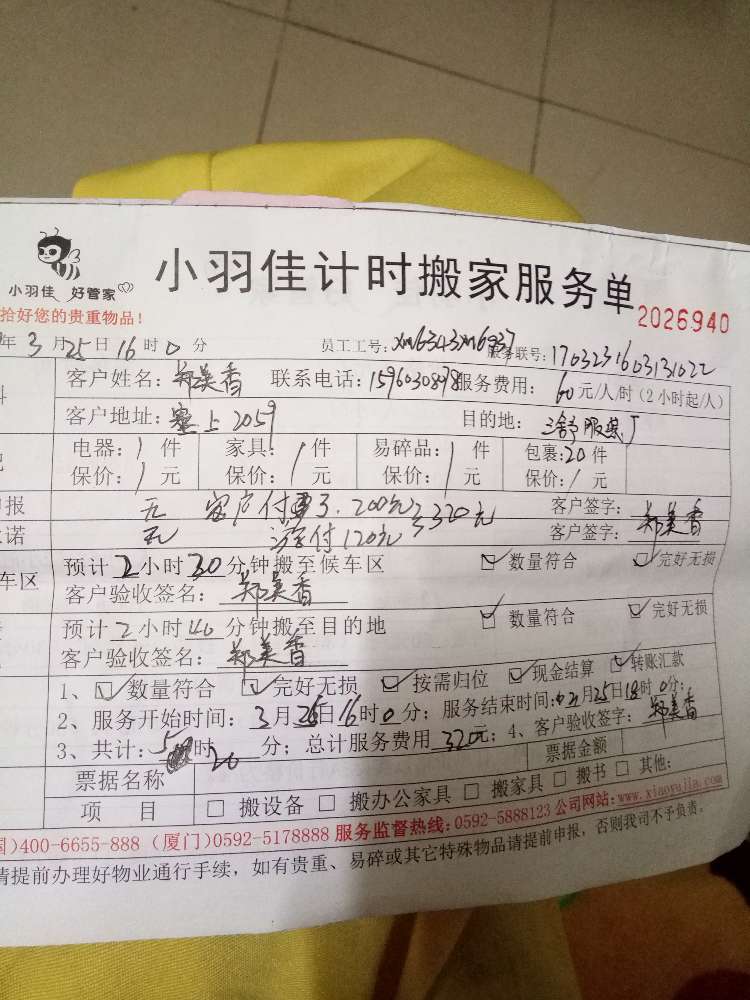 小羽佳计时搬家服务单
小羽佳 好管家
2026940
拾好您的贵重物品!
年3月25日16时0分 员工工号: xm6343xm6937 服务联号: 1703231603131022
客户姓名: 郑美香 联系电话: 服务费用: 60元/人/时(2小时起/人)
客户地址: 上2059 目的地: 服装厂
电器: 1件 家具: 1件 易碎品: 1件 包裹: 20件
保价: 1元 保价: 1元 保价: 1元 保价: 1元
报 无 客户付 了.200元 320元 客户签字:
诺 无 付120元 客户签字: 郑美香
车区 预计2小时30分钟搬至候车区 ☑数量符合 ☑完好无损
客户验收签名: 郑美香
预计2小时40分钟搬至目的地 ☑数量符合 ☑完好无损
客户验收签名: 郑美香
1、☑数量符合 ☑完好无损 ☑按需归位 ☑现金结算 ☑转账汇款
2、服务开始时间: 3月25日16时0分; 服务结束时间: 月25日18时0分;
3、共计: 时20分; 总计服务费用320元; 4、客户验收签字: 郑美香
票据名称 票据金额
项 目 □搬设备 □搬办公家具 □搬家具 □搬书 □其他:
)400-6655-888 (厦门)0592-5178888 服务监督热线: 0592-5888123 公司网站: www.xiaoyujia.com
请提前办理好物业通行手续,如有贵重、易碎或其它特殊物品请提前申报,否则我司不予负责。